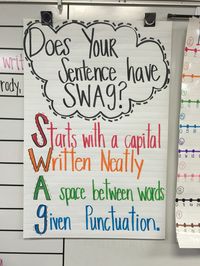 Does Your
Sentence have
SWAg?
Starts with a capital
Written Neatly
A space between words
given Punctuation.
writ
rody,